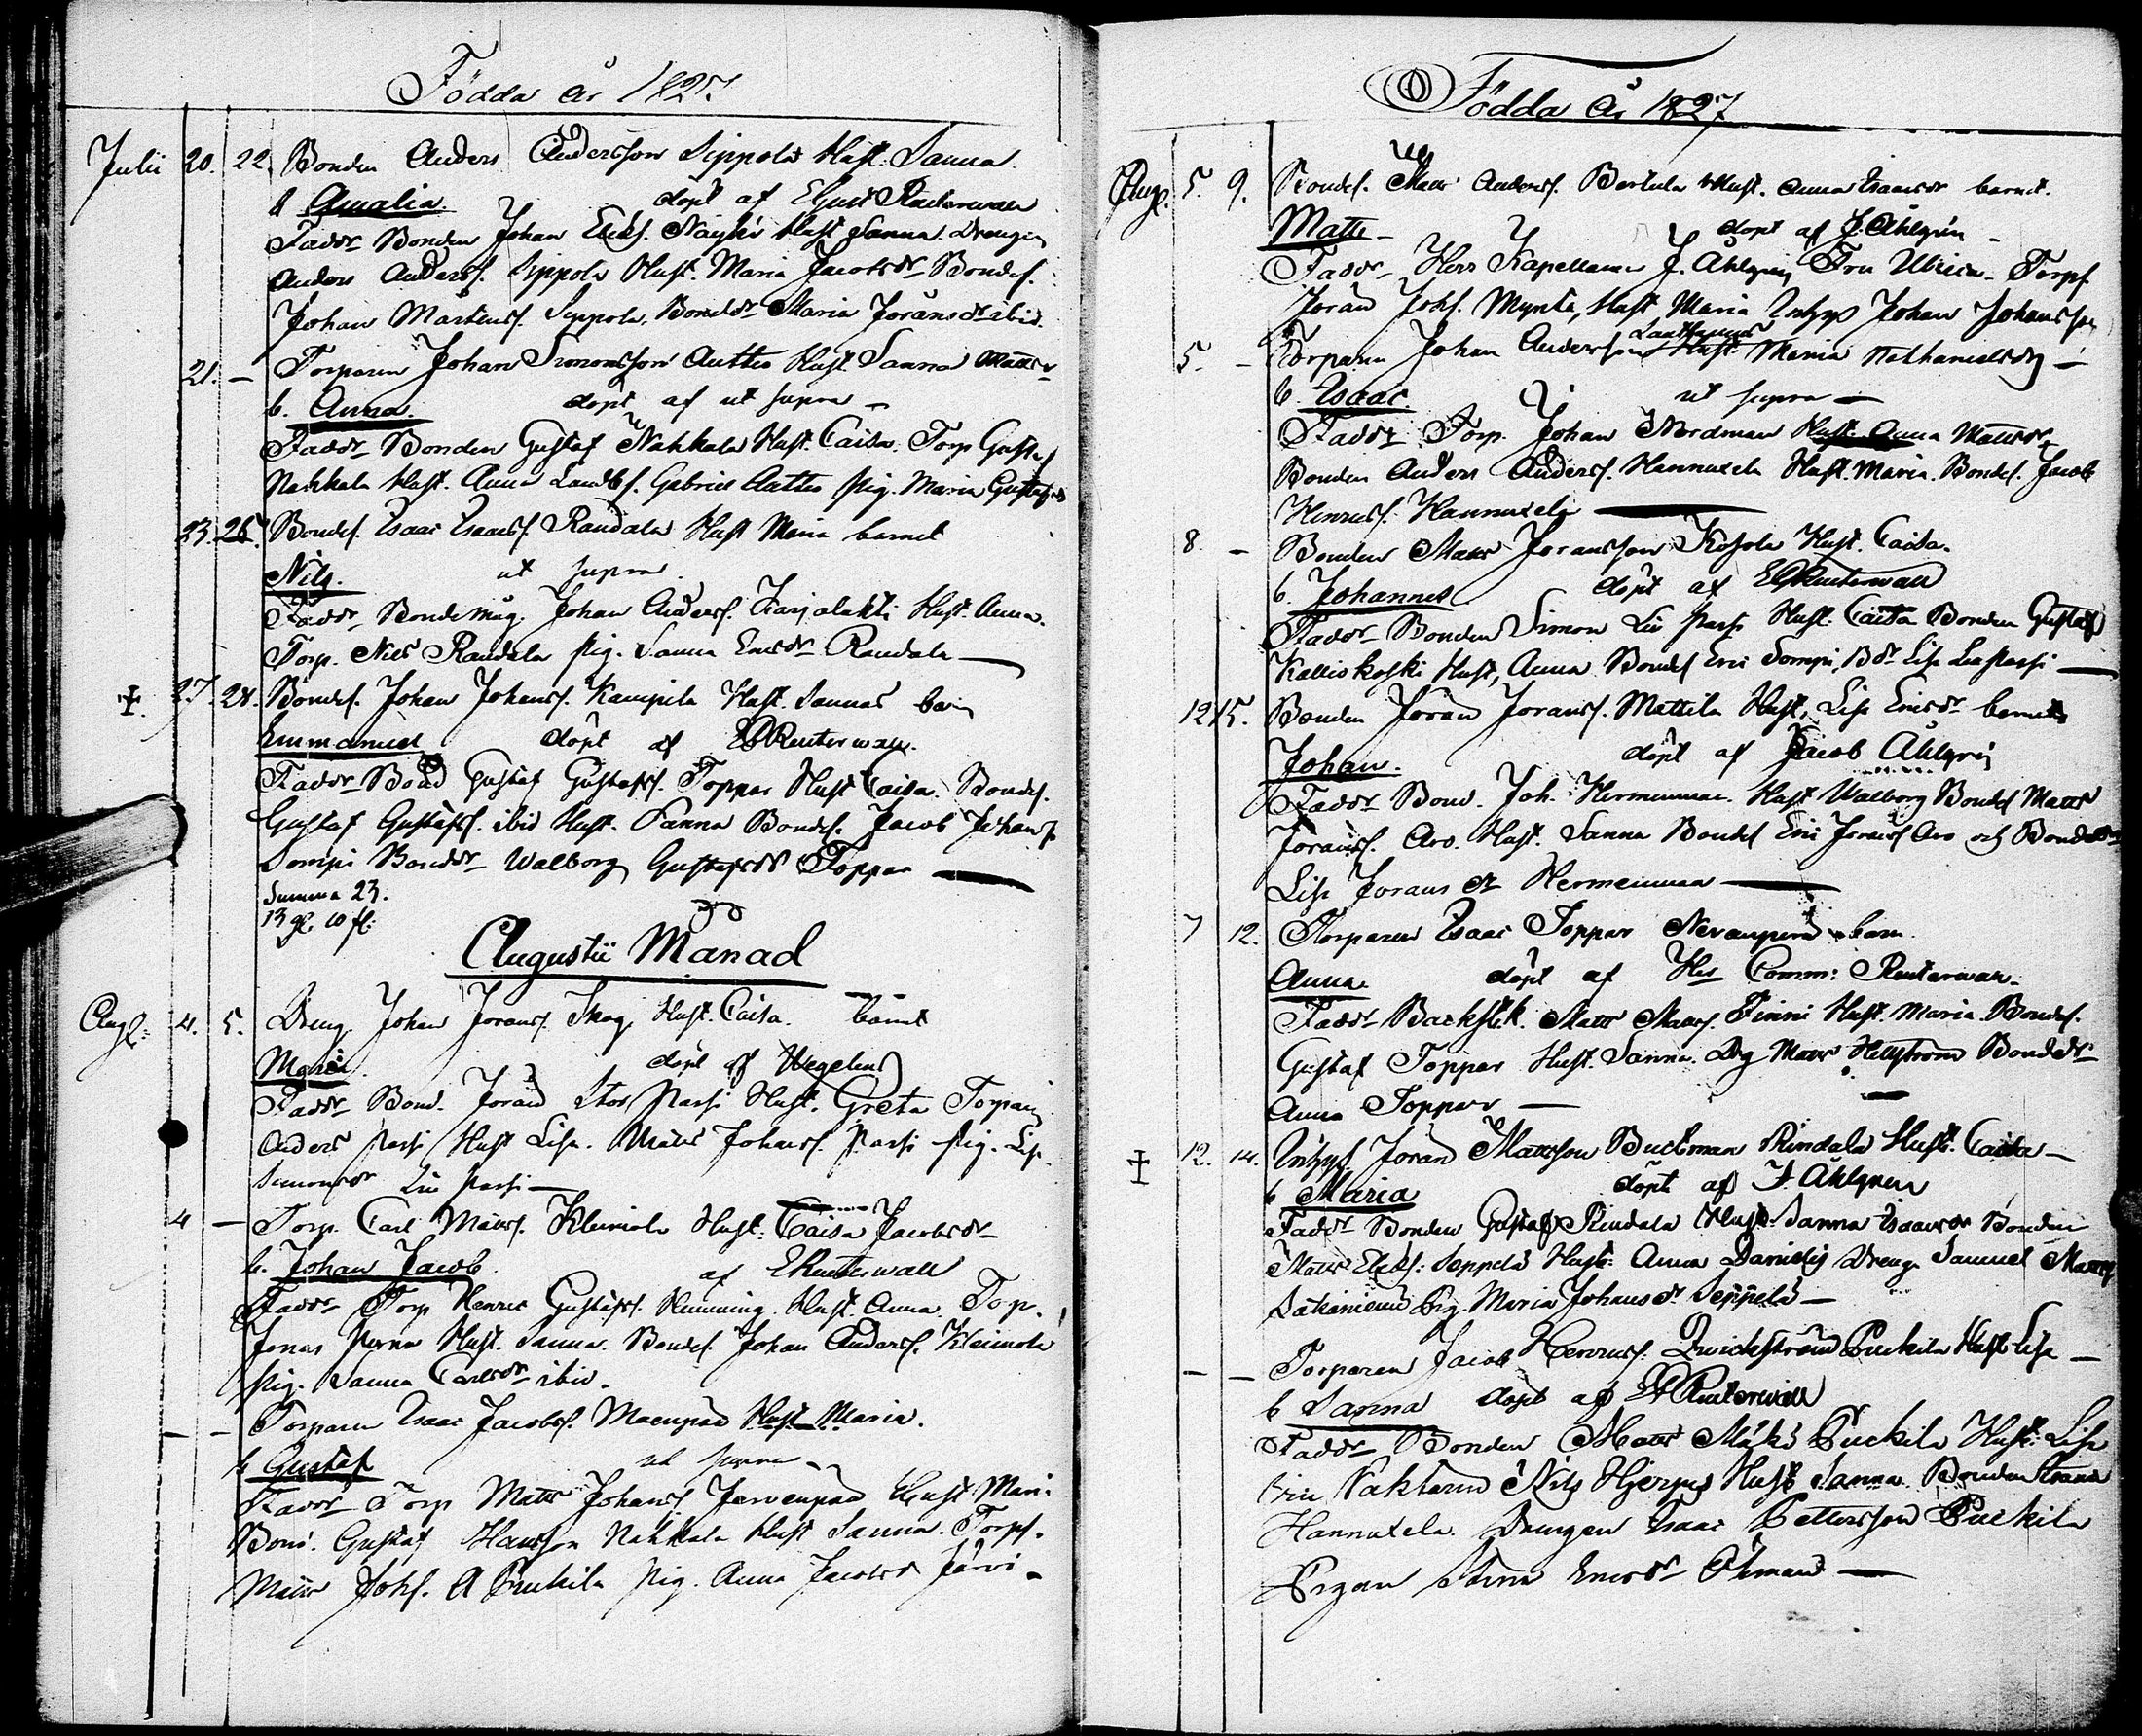 Födda år 1827.
Julii 20. 22. Bonden Anders Andersson Seppola Hust. Sanna
b Amalia döpt af EGust Reuterwall
Faddr Bonden Johan Ericks. Hust Sanna. Drengen
Anders Anderss. Seppola Hust. Maria Jacobsdr Bondes.
Johan Mårtenss. Seppola, Bonddr Maria Joransdr ibid.
21. — Torparen Johan Simonsson Auttio Hust Sanna Mattsdr
b. Anna. döpt af ut supra —
Faddr Bonden Gustaf Nahkala Hust. Caisa. Torp Gustaf
Nahkala Hust. Anna Gabriel Auttio pig. Maria Gustafsdr
23. 25. Bondes. Isaac Isaacs. Randala Hust Maria barnet
Nils. ut supra
Faddr Bondemåg. Johan Anderss. Karjalahti Hust. Anna.
Torp. Nils Randala pig. Sanna Ericsdr Randala —
27. 28. Bondes. Johan Johanss. Kampila Hust. Sannas barn
Emmanuel döpt af EGReuterwall.
Faddr Bond Gustaf Gustafss. Toppar Hust Caisa. Bondes.
Gustaf Gustafss. ibid Hust. Sanna Bondes. Jacob Johanss
Sompi Bonddr Walborg Gustafsdr Toppar —
Summa 23.
13 gl. 10 fl.
Augustii Månad
Aug. 4. 5. Dreng Johan Joranss. Skog. Hust. Caisa. barnet
Maria. döpt af Wegelius
Faddr Bond. Joran Stor Passi Hust. Greta Torparen
Anders Passi Hust Lisa. Matts Johanss. Passi pig. Lisa
Simonsdr Lill Passi —
4 — Torp. Carl Matts. Kleimola Hust. Caisa Jacobsdr
b. Johan Jacob. af EReuterwall
Faddr Torp Henric Gustafss. Hemming. Hust. Anna Torp.
Jonas Perna Hust. Sanna. Bondes. Johan Anderss. Kleimola
pig. Sanna Carlsdr ibid.
— — Torparen Isaac Jacobss. Maenpää Hust. Maria.
b Gustaf ut supra —
Faddr Torp Matts Johanss Jarvenpää Hust Maria
Bond. Gustaf Hansson Nahkala Hust Sanna. Torps.
Matts Johs. A Puckila pig. Anna Jacobsdr Järvi-
Födda År 1827
Aug. 5. 9. Bondes. Matts Anderss. Bertula Hust. Anna Isaacsdr barnet.
Matts — döpt af J. Ahlgrén —
Faddr Herr Kapellanen J. Ahlgrén, Fru Ulrica — Torps.
Joran Johs. Mynta, Hust Maria Inhys Johan Johansson
5. — Torparen Johan Andersson Hust. Maria Nathanaelsdr —
b. Isaac ut supra —
Faddr Torp. Johan Nordman Hust. Anna Mattsdr
Bonden Anders Anderss. Hannuxela Hust. Maria. Bondes. Jacob
Henricss. Hannuxela —
8. — Bonden Matts Joransson Kohola Hust. Caisa.
b. Johannes döpt af EGReuterwall
Faddr Bonden Simon Lill Passi Hust. Caisa Bonden Gustaf
Kallio koski Hust, Anna Bondes Eric Sompi, Bdr Lisa Lillpassi —
12 15. Bonden Joran Joranss. Mattila Hust. Lisa Ericsdr barnet
Johan. döpt af Jacob Ahlgrén
Faddr Bond. Joh. Hermenmaa. Hust Walborg Bondes Matts
Joranss. Aro. Hust. Sanna Bondes Eric Joranss Aro och Bonddr
Lisa Joransdr Hermeinmaa —
7 12. Torparen Isaac Toppar Nevanperä barn
Anna. döpt af Hr Comm: Reuterwall.
Faddr Backstk. Matts Matss. Finni Hust. Maria. Bondes.
Gustaf Toppar Hust. Sanna. Dg Matts Hellström Bonddr
Anna Toppar —
12. 14. Inhys Joran Mattsson Buckman Rindala Hust. Caisa —
b Maria döpt af J. Ahlgren
Faddr Bonden Gustaf Rindala Hust. Sanna Isaacsdr Bonden
Matts Elcks: Seppelä Hust: Anna Davidsdr Dreng Samuel Matts
Latikiniemi Pig. Maria Johansdr Seppelä —
— — Torparen Jacob Henricss. Quickström Puckila Hust Lisa —
b Sanna döpt af EGReuterwall
Faddr Bonden Matts Mäki Puckila Hust: Lisa
Nils Hjerpe Hust Sanna. Bonden
Hannuxela. Drengen Isaac Pettersson Puckila
Pigan Stina Ericsdr Öhman —